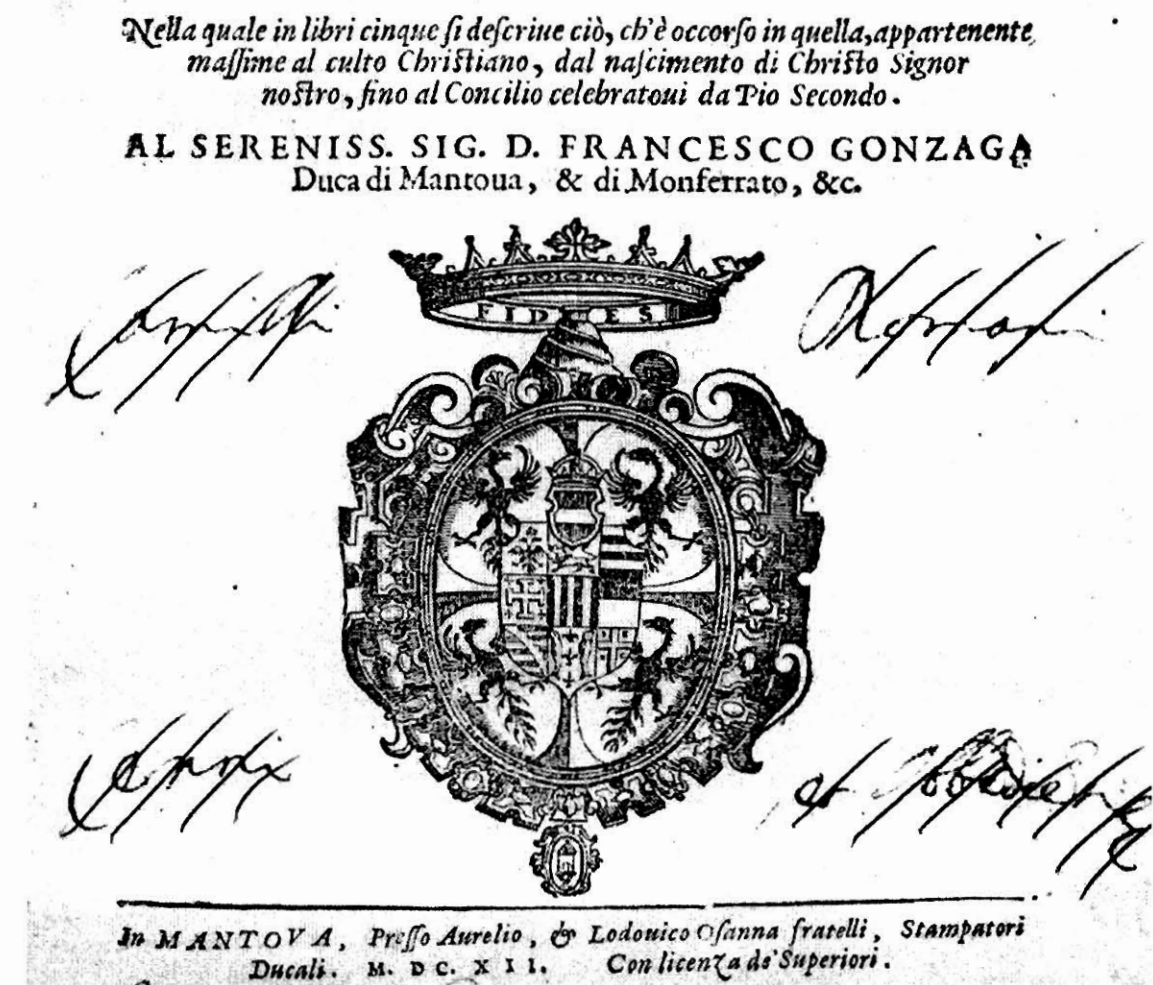 Nella quale in libri cinque ſi deſcriue ciò, ch'è occorſo in quella, appartenente
maſſime al culto Chriſtiano, dal naſcimento di Chriſto Signor
noſtro, fino al Concilio celebratoui da Pio Secondo.
AL SERENISS. SIG. D. FRANCESCO GONZAGA
Duca di Mantoua, & di Monferrato, &c.
FIDES
In MANTOVA, Preſſo Aurelio, & Lodouico Oſanna fratelli, Stampatori
Ducali. M. DC. XII. Con licenza de' Superiori.